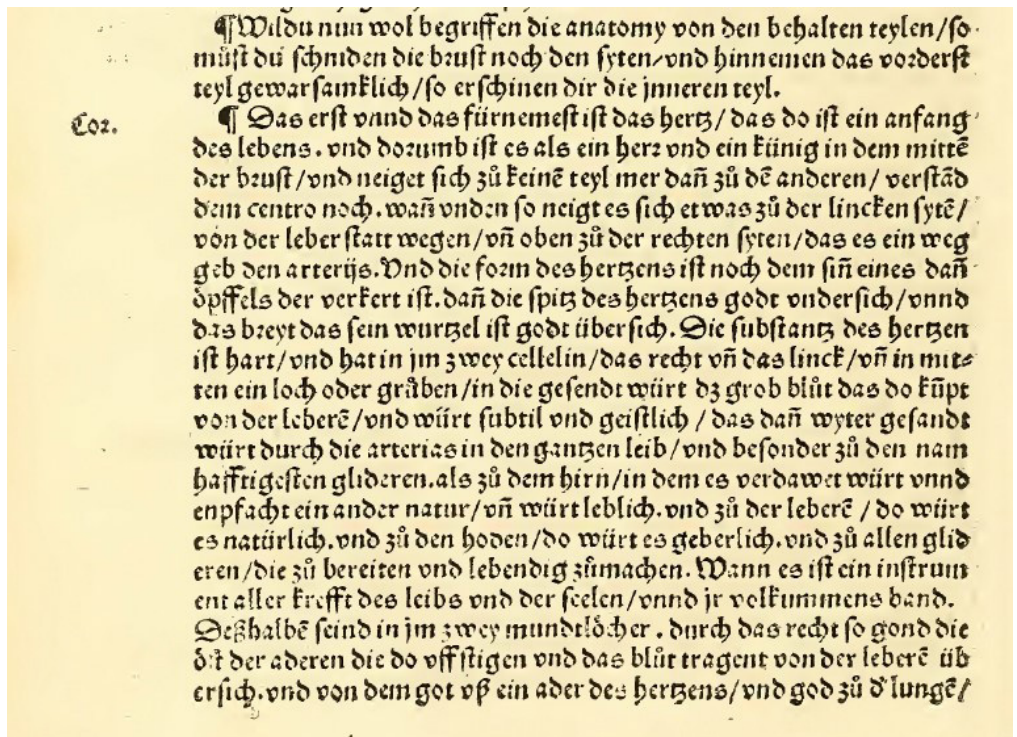 ¶Wildu nun wol begriffen die anatomy von den behalten teylen/so
müst du schniden die brust noch den syten/vnd hinnemen das vorderst
teyl gewarsamklich/so erschinen dir die jnneren teyl.
Cor.
¶ Das erst vnnd das fürnemest ist das hertz/ das do ist ein anfang
des lebens. vnd dorumb ist es als ein herr vnd ein künig in dem mittē
der brust/vnd neiget sich zů keinē teyl mer dañ zů dē anderen/ verstād
dem centro noch. wañ vnden so neigt es sich etwas zů der lincken sytē/
von der leber statt wegen/vñ oben zů der rechten syten/das es ein weg
geb den arterijs. Vnd die form des hertzens ist noch dem siñ eines dañ
öpffels der verkert ist. dañ die spitz des hertzens godt vndersich/vnnd
das breyt das sein wurtzel ist godt übersich. Die substantz des hertzen
ist hart/vnd hat in jm zwey cellelin/das recht vñ das linck/vñ in mit-
ten ein loch oder gräben/in die gesendt würt dz grob blůt das do kūpt
von der leberē/vnd würt subtil vnd geistlich / das dañ wyter gesandt
würt durch die arterias in den gantzen leib/vnd besonder zů den nam
hafftigesten glideren. als zů dem hirn/in dem es verdawet würt vnnd
enpfacht ein ander natur/vñ würt leblich. vnd zů der leberē / do würt
es natürlich. vnd zů den hoden/do würt es geberlich. vnd zů allen glid
eren/die zů bereiten vnd lebendig zůmachen. Wann es ist ein instrum
ent aller krefft des leibs vnd der seelen/vnnd jr volkummens band.
Deßhalbē seind in jm zwey mundtlöcher . durch das recht so gond die
öst der aderen die do vff stigen vnd das blůt tragent von der leberē üb
ersich. vnd von dem got vß ein ader des hertzens/vnd god zů d' lungē/